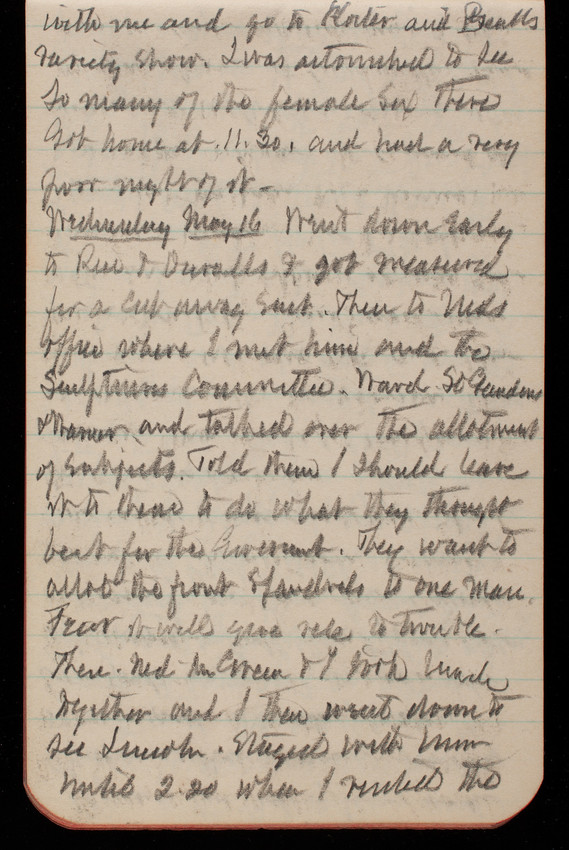 with me and go to Koster and Beals
Variety Show. I was astonished to see
so many of the female sex there
Got home at 11.30. and had a very
poor night of it -
Wednesday May 16 Went down early
to Rice & Duvalls & got measured
for a cut away suit. Then to Neds
office where I met him and the
Sculptures Committee. Ward. St Gaudens
& Warner. and talked over the allotment
of subjects. Told them I should leave
it to them to do what they thought
best for the Goverment. They want to
allot the front Spandrels to one man.
Fear it will give rise to trouble.
Then. Ned & I took lunch
together and I then went down to
see Lincoln. Stayed with him
until 2.20 when I the